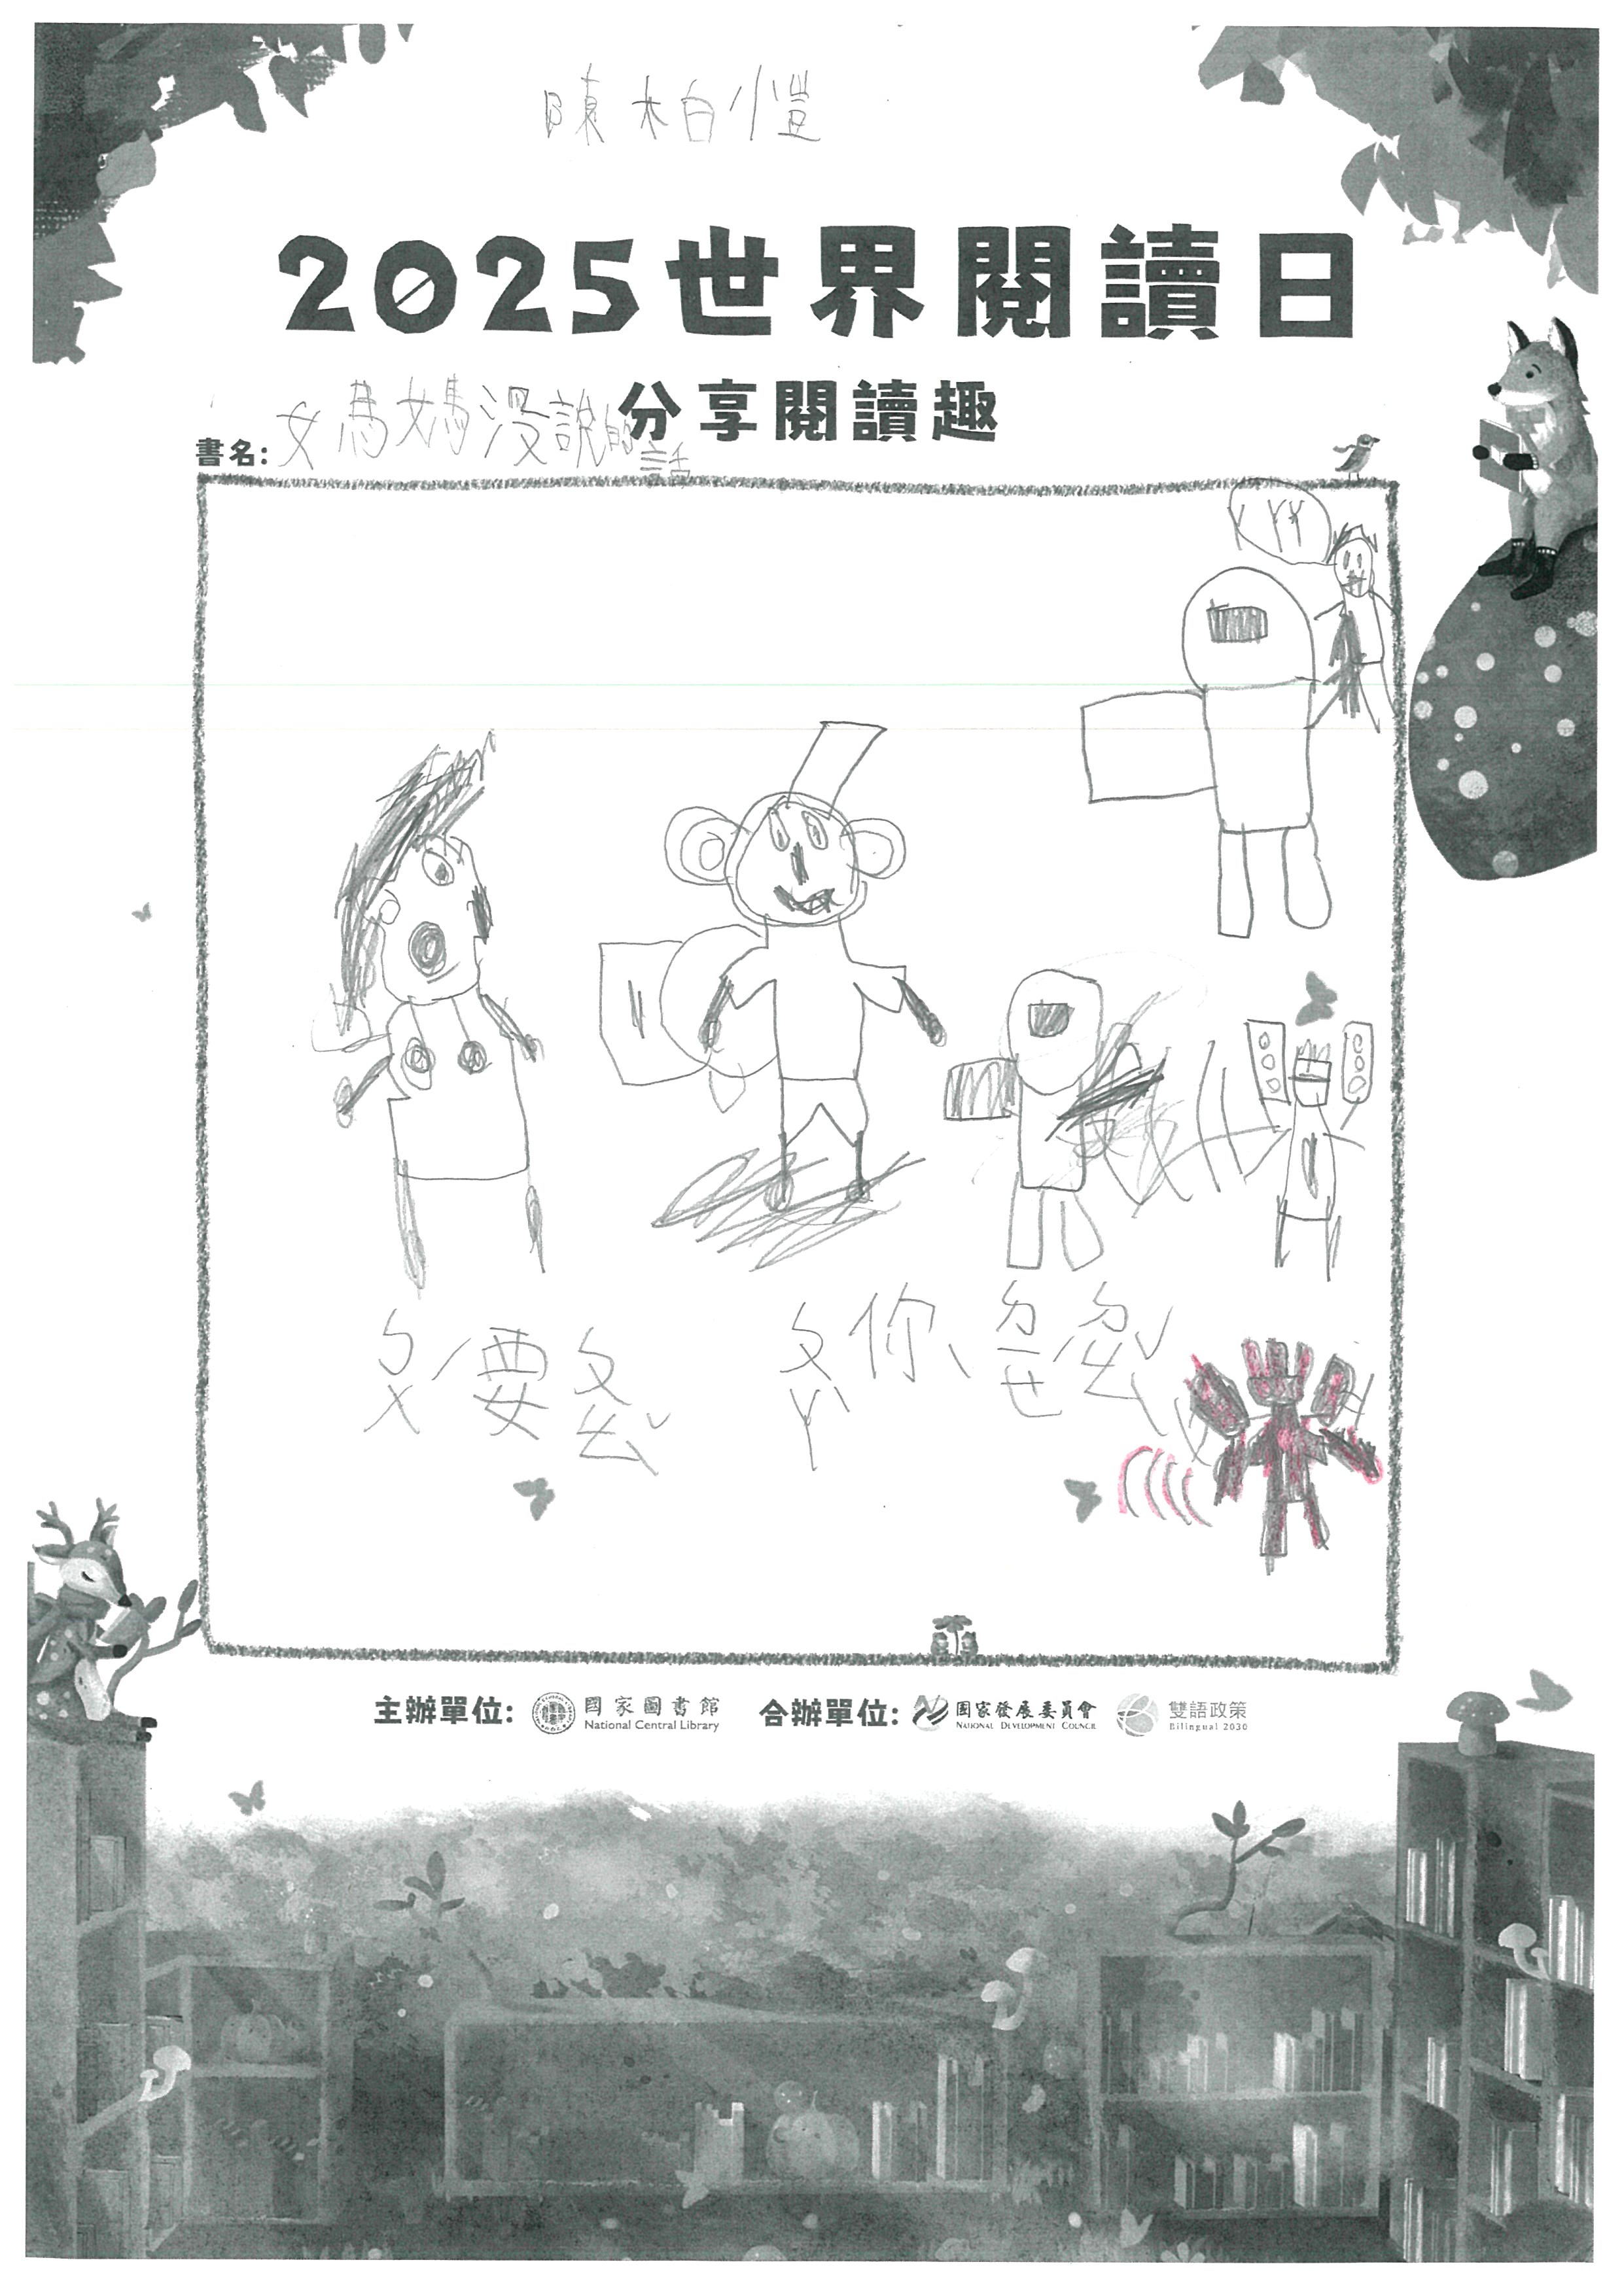 陳柏愷
2025世界閱讀日
分享閱讀趣
書名: 媽媽沒說的話
ㄅㄨˊ要ㄆㄠˇ
ㄆㄚˋ你、
主辦單位: 國家圖書館 National Central Library 合辦單位: 國家發展委員會 NATIONAL DEVELOPMENT COUNCIL 雙語政策 Bilingual 2030